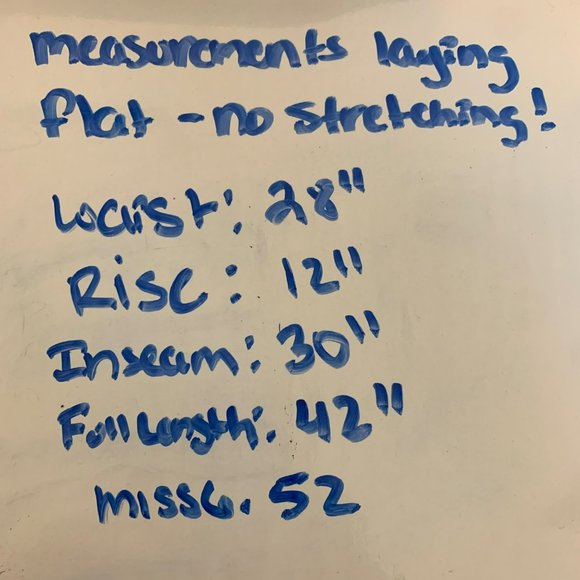 measurements laying
flat - no stretching!
Waist: 28"
Rise: 12"
Inseam: 30"
Full Length: 42"
miss6. 52